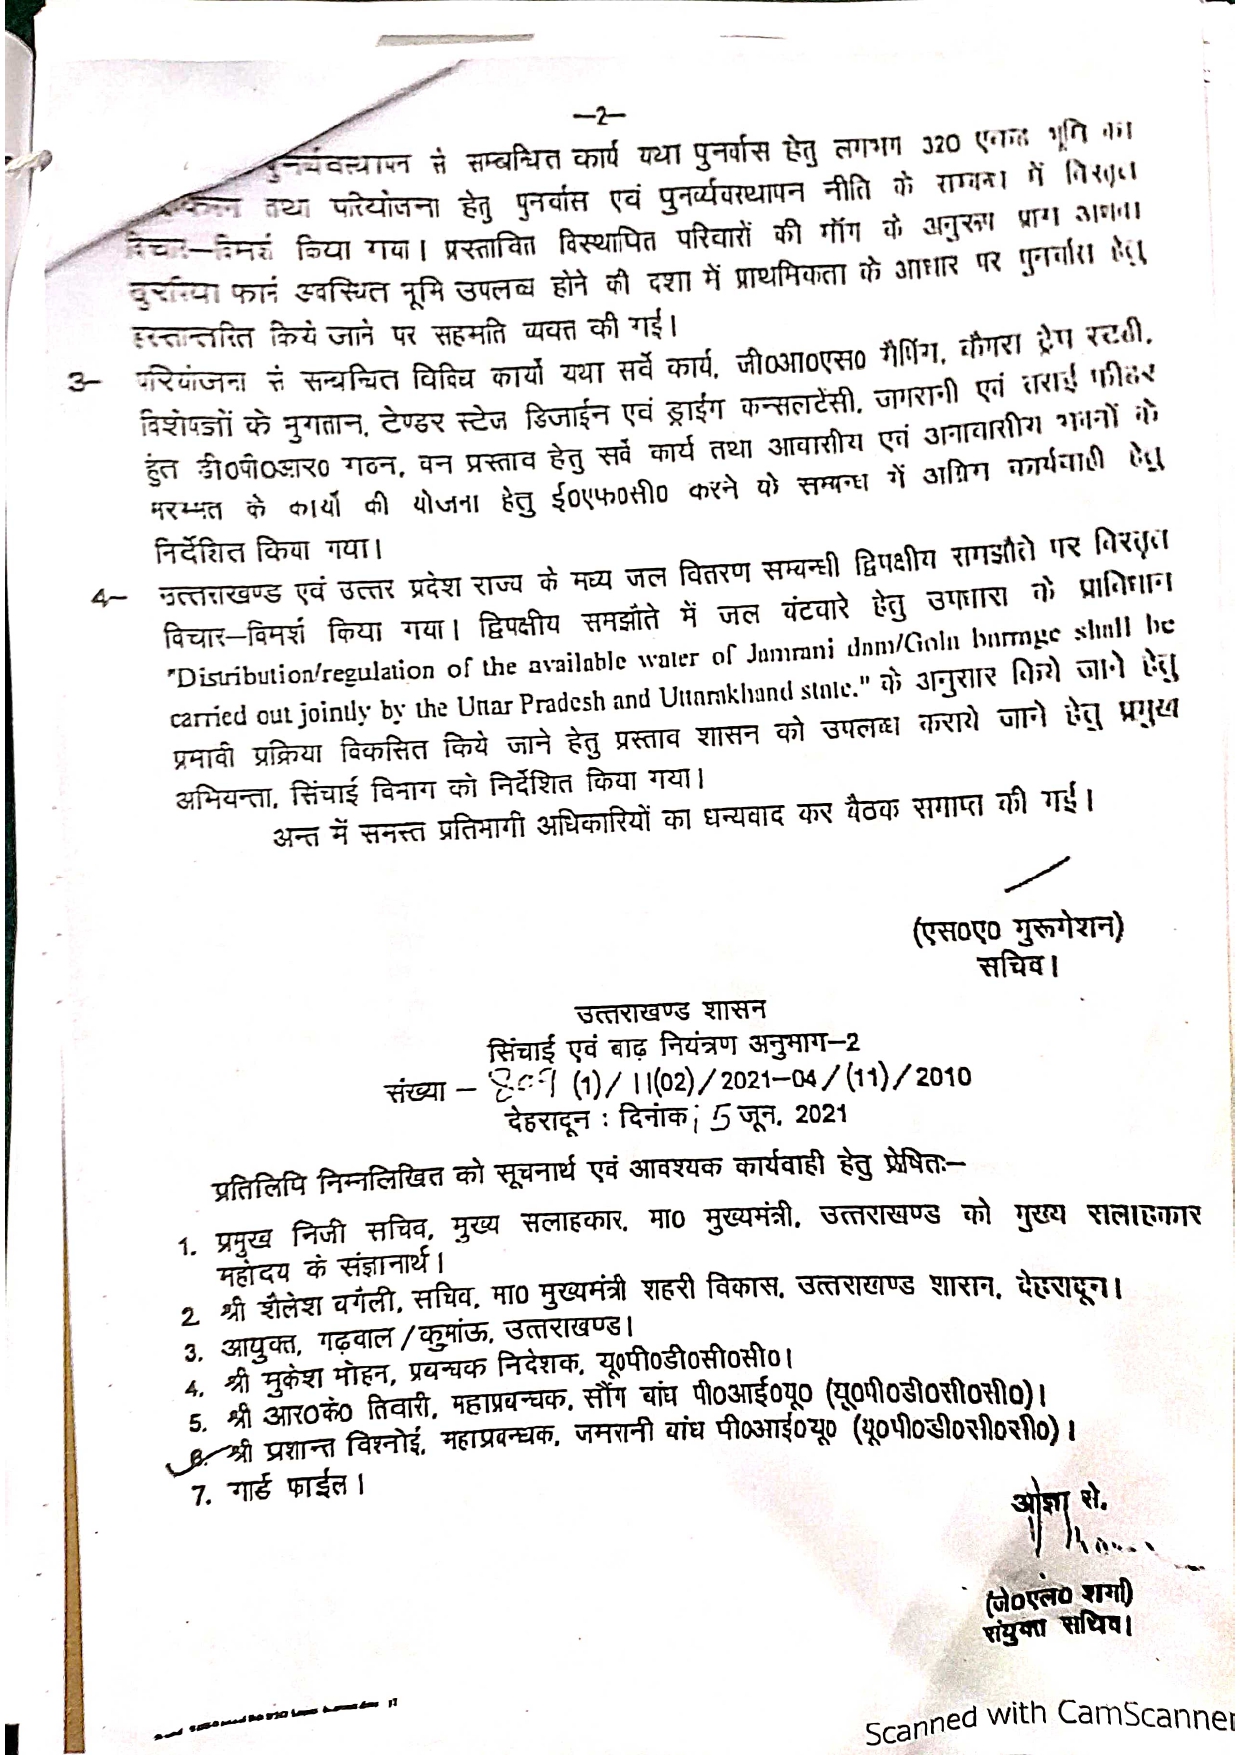 —2—
पुनर्व्यवस्थापन से सम्बन्धित कार्य यथा पुनर्वास हेतु लगभग 320 एकड भूमि का
तथा परियोजना हेतु पुनर्वास एवं पुनर्व्यवस्थापन नीति के सम्बन्ध में विस्तृत
विचार–विमर्श किया गया। प्रस्तावित विस्थापित परिवारों की माँग के अनुरूप प्राग अथवा
फार्म अवस्थित भूमि उपलब्ध होने की दशा में प्राथमिकता के आधार पर पुनर्वास हेतु
हस्तान्तरित किये जाने पर सहमति व्यक्त की गई।
3– परियोजना से सम्बन्धित विविध कार्यों यथा सर्वे कार्य, जी0आ0एस0 मैपिंग, कैमरा ट्रैप स्टडी,
विशेषज्ञों के भुगतान, टेण्डर स्टेज डिजाईन एवं ड्राईंग कन्सलटेंसी, जमरानी एवं तराई फीडर
हेतु डी0पी0आर0 गठन, वन प्रस्ताव हेतु सर्वे कार्य तथा आवासीय एवं अनावासीय भवनों के
मरम्मत के कार्यों की योजना हेतु ई0एफ0सी0 करने के सम्बन्ध में अग्रिम कार्यवाही हेतु
निर्देशित किया गया।
4– उत्तराखण्ड एवं उत्तर प्रदेश राज्य के मध्य जल वितरण सम्बन्धी द्विपक्षीय समझौते पर विस्तृत
विचार–विमर्श किया गया। द्विपक्षीय समझौते में जल बंटवारे हेतु उपधारा के प्राविधान
"Distribution/regulation of the available water of Jamrani dam/Gola barrage shall be
carried out jointly by the Uttar Pradesh and Uttarakhand state." के अनुसार किये जाने हेतु
प्रभावी प्रक्रिया विकसित किये जाने हेतु प्रस्ताव शासन को उपलब्ध कराये जाने हेतु प्रमुख
अभियन्ता, सिंचाई विभाग को निर्देशित किया गया।
अन्त में समस्त प्रतिभागी अधिकारियों का धन्यवाद कर बैठक समाप्त की गई।
(एस0ए0 मुरूगेशन)
सचिव।
उत्तराखण्ड शासन
सिंचाई एवं बाढ़ नियंत्रण अनुभाग–2
संख्या – (1)/II(02)/2021–04/(11)/2010
देहरादून : दिनांक 15 जून, 2021
प्रतिलिपि निम्नलिखित को सूचनार्थ एवं आवश्यक कार्यवाही हेतु प्रेषितः–
1. प्रमुख निजी सचिव, मुख्य सलाहकार, मा0 मुख्यमंत्री, उत्तराखण्ड को मुख्य सलाहकार
महोदय के संज्ञानार्थ।
2. श्री शैलेश बगौली, सचिव, मा0 मुख्यमंत्री शहरी विकास, उत्तराखण्ड शासन, देहरादून।
3. आयुक्त, गढ़वाल/कुमांऊ, उत्तराखण्ड।
4. श्री मुकेश मोहन, प्रबन्धक निदेशक, यू0पी0डी0सी0सी0।
5. श्री आर0के0 तिवारी, महाप्रबन्धक, सौंग बांध पी0आई0यू0 (यू0पी0डी0सी0सी0)।
6. श्री प्रशान्त विश्नोई, महाप्रबन्धक, जमरानी बांध पी0आई0यू0 (यू0पी0डी0सी0सी0)।
7. गार्ड फाईल।
आज्ञा से,
(जे0एल0 शर्मा)
संयुक्त सचिव।
Scanned with CamScanner